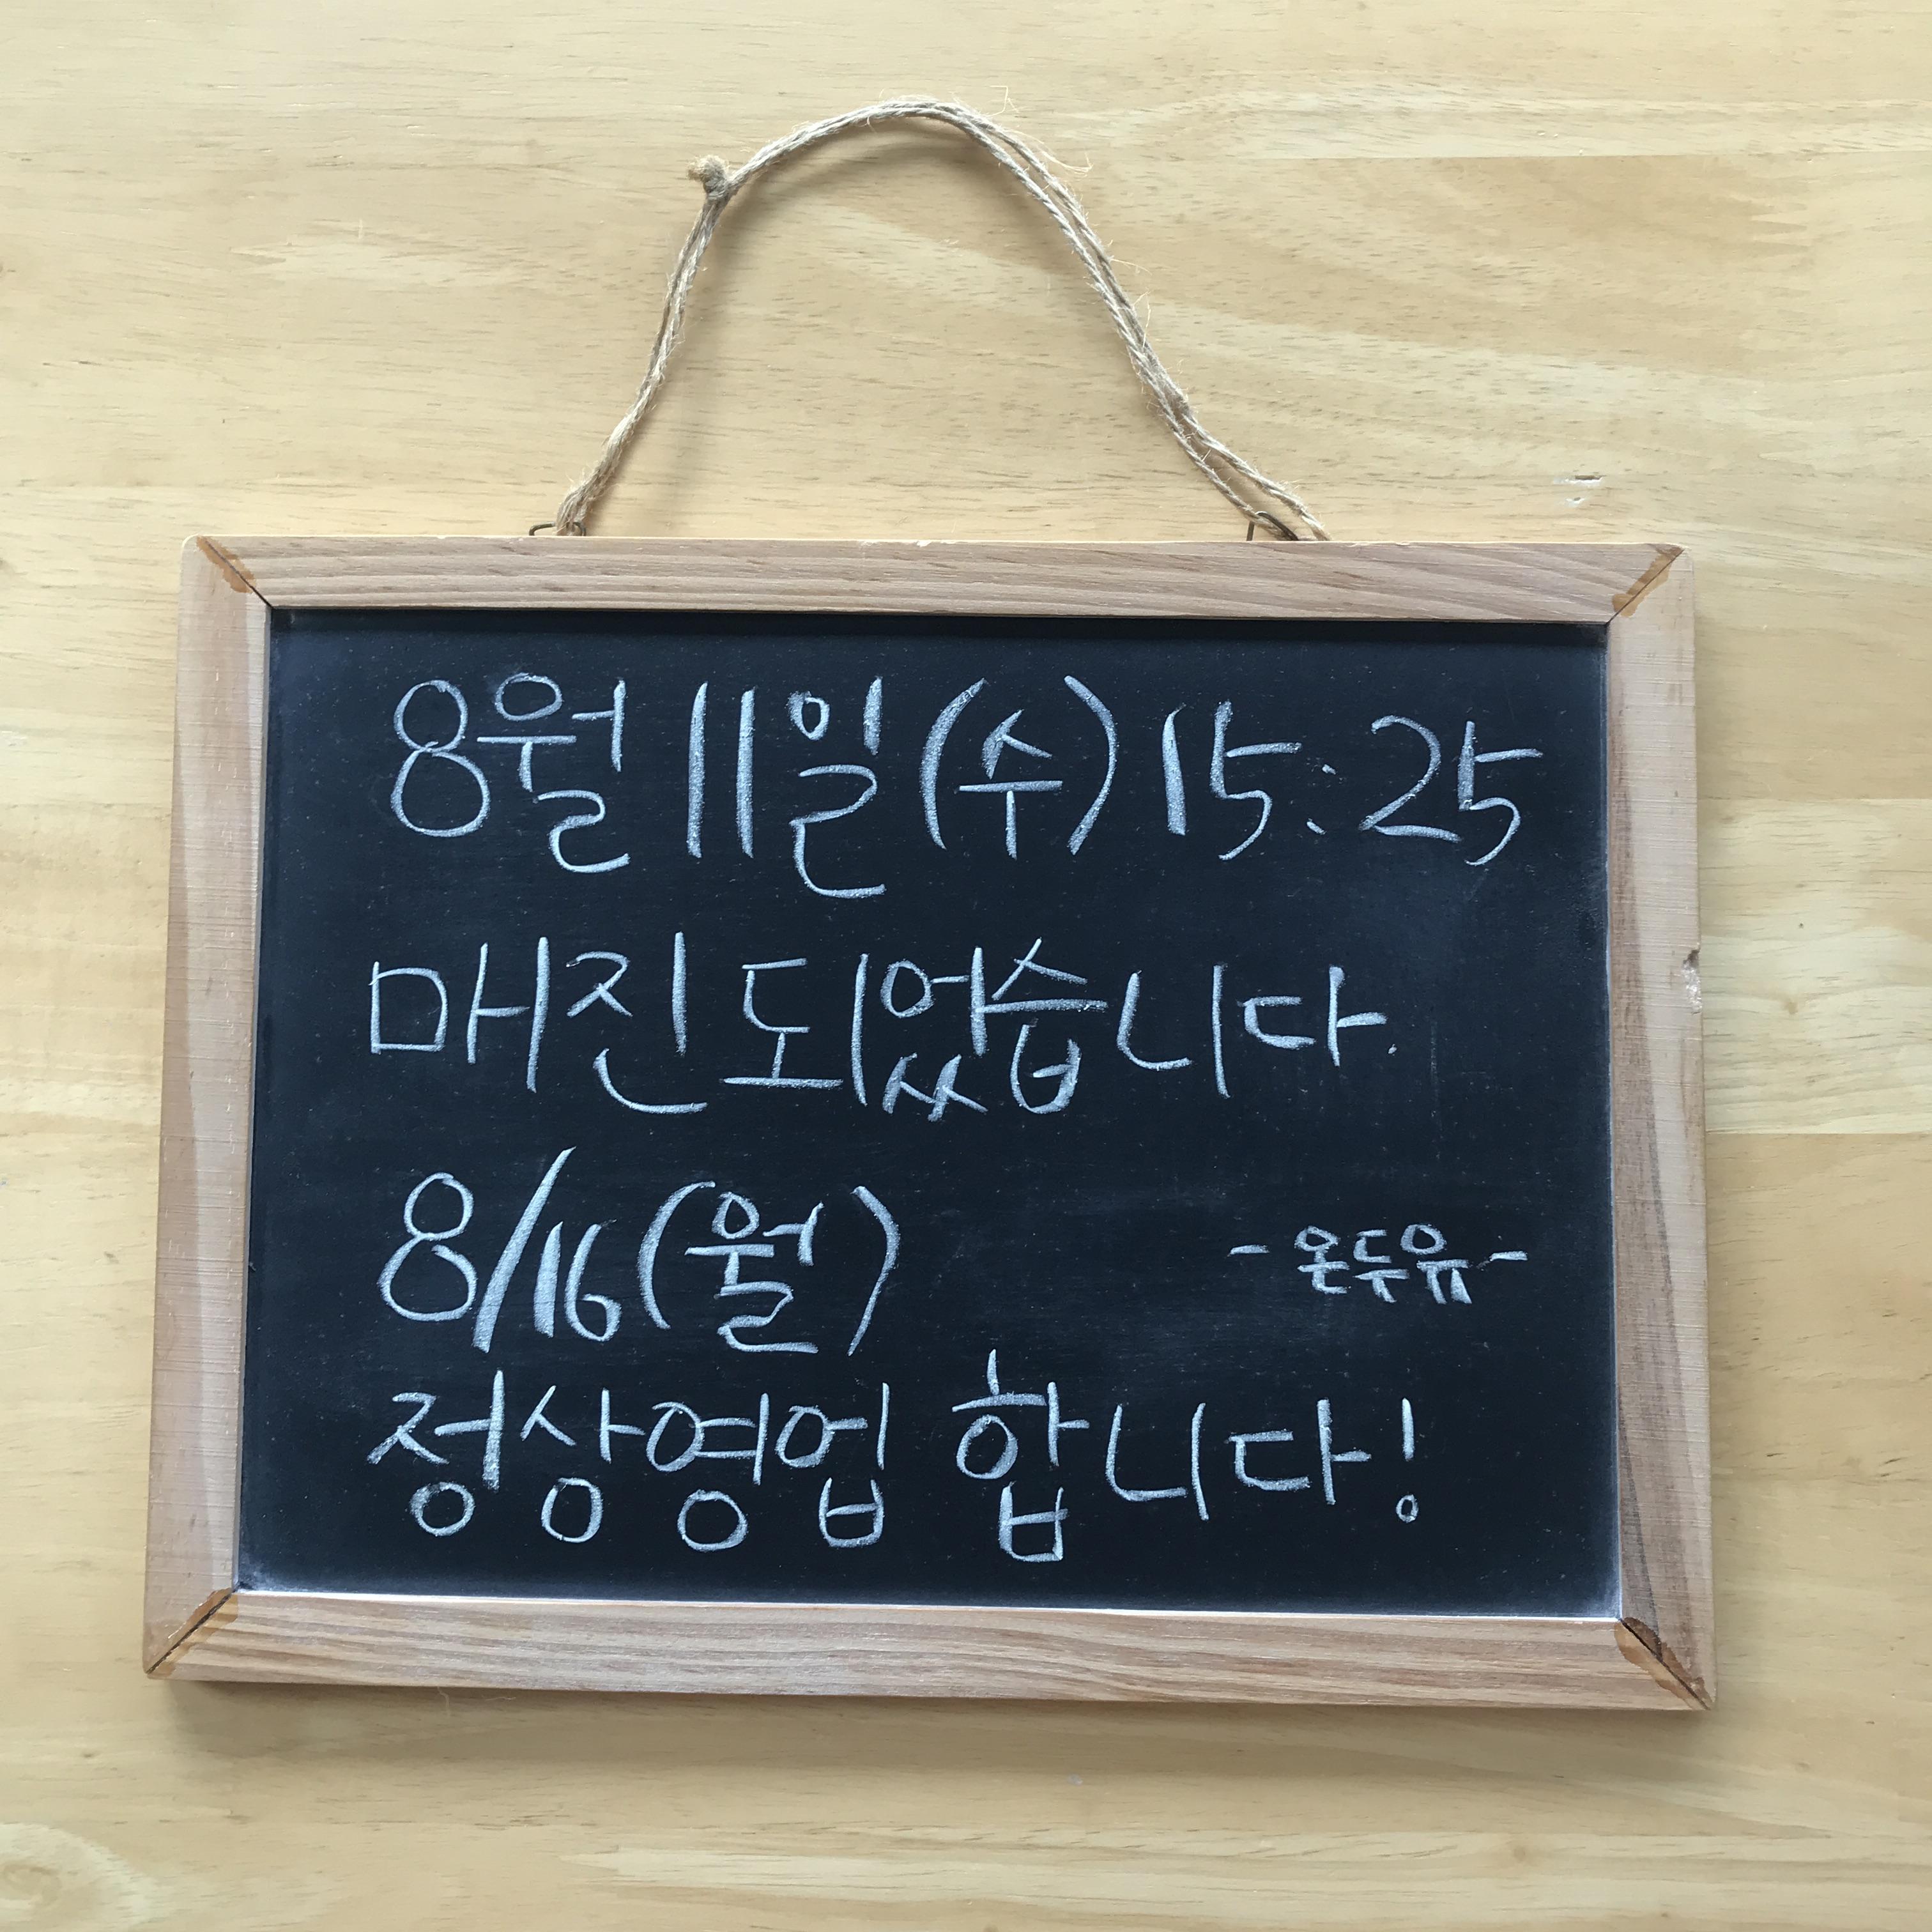 8월 11일(수) 15:25
매진 되었습니다.
8/16(월)
-온두유-
정상영업 합니다!